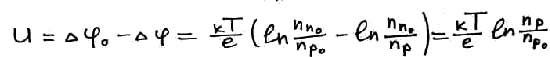 U = Δφ₀ - Δφ = kT/e (ln n_{n₀}/n_{p₀} - ln n_{n₀}/n_p) = kT/e ln n_p/n_{p₀}